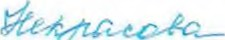 Некрасова